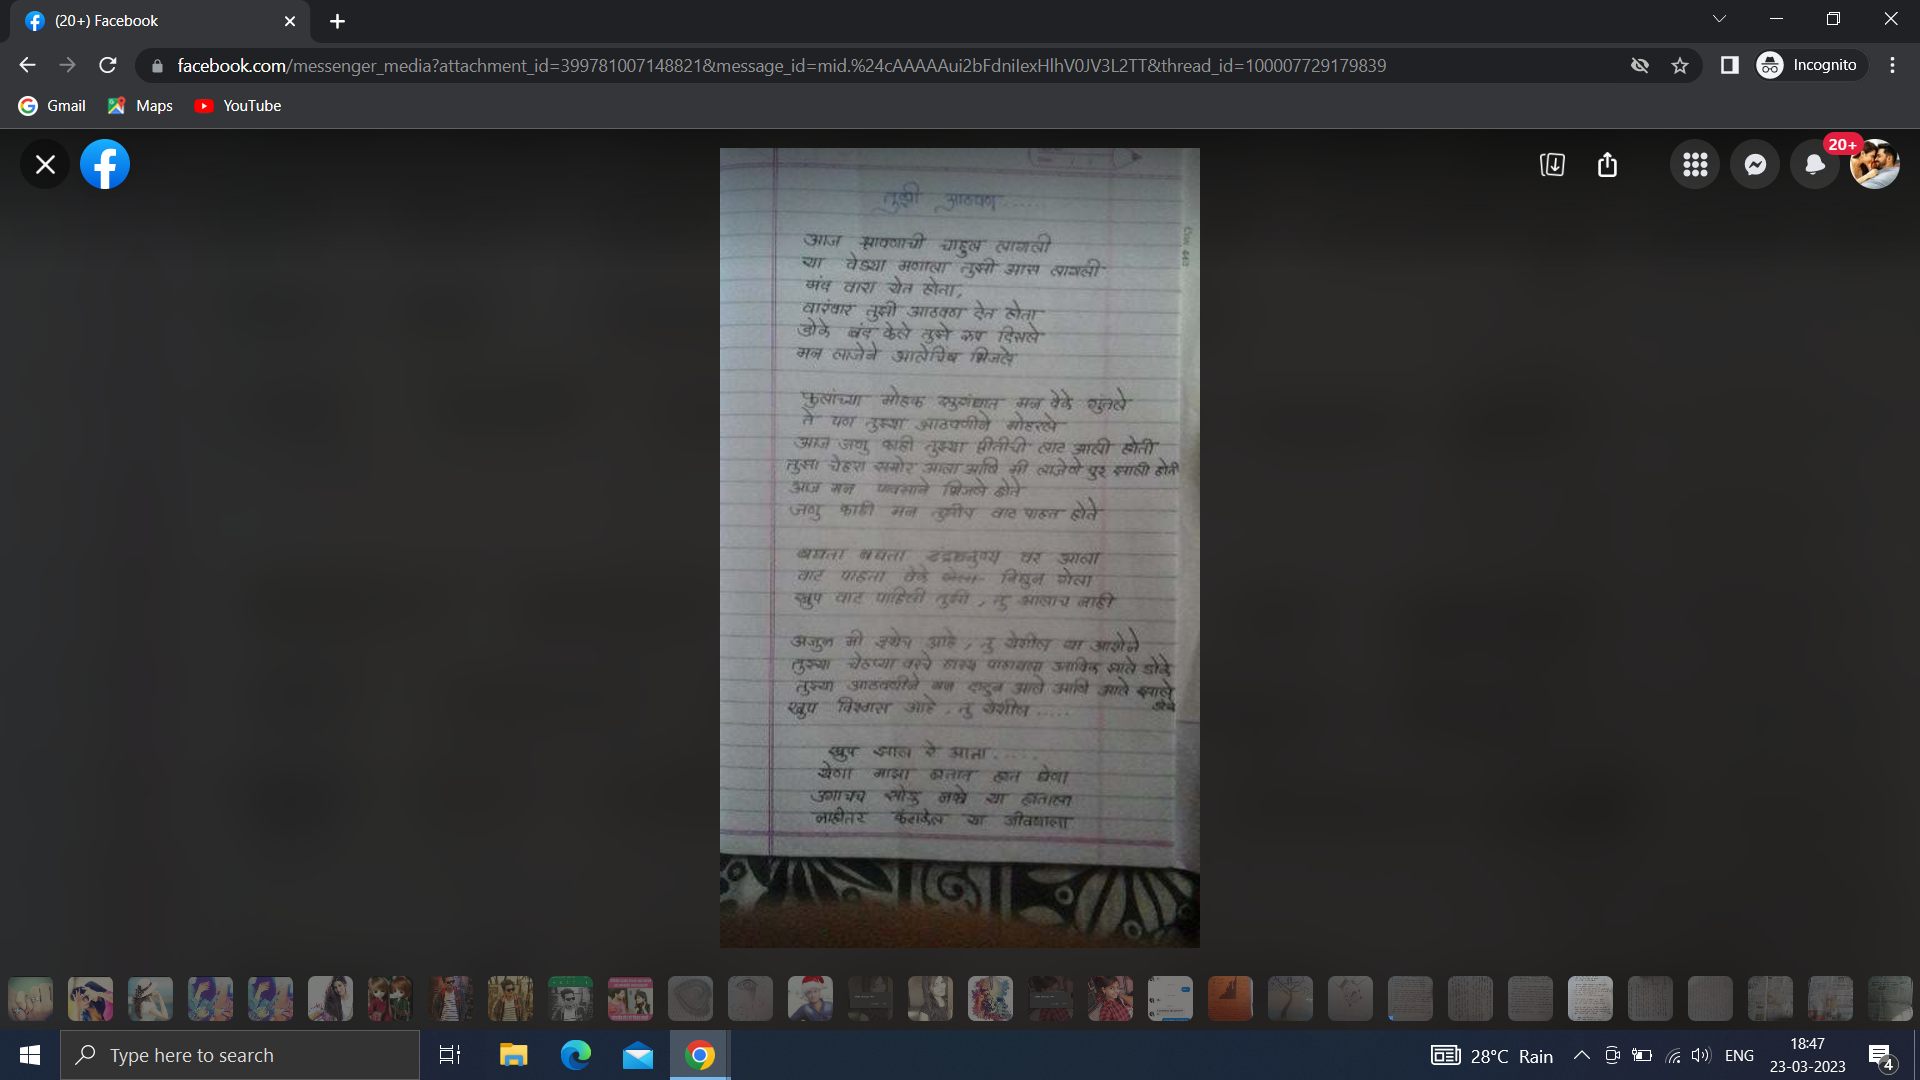 (20+) Facebook
facebook.com/messenger_media?attachment_id=399781007148821&message_id=mid.%24cAAAAAui2bFdniIexHlhV0JV3L2TT&thread_id=100007729179839
Incognito
Gmail Maps YouTube
20+
तुझी आठवण......
आज श्रावणाची चाहुल लागली
या वेड्या मनाला तुझी आस लागली
मंद वारा येत होता,
वारंवार तुझी आठवण देत होता
डोळे बंद केले तुझे रूप दिसले
मन लाजेने भिजले
फुलांच्या मोहक सुगंधात मन वेडे गुंतले
ते पण तुझ्या आठवणीने मोहरले
आज जणु काही तुझ्या प्रीतीची लाट आली होती
तुझा चेहरा समोर आला आणि मी लाजेने चुर झाली होती
आज मन पावसाने भिजले होते
जणु काही मन तुझीच वाट पाहत होते
बघता बघता इंद्रधनुष्य वर आला
वाट पाहता निघुन गेला
खुप वाट पाहिली तुझी, तु आलाच नाही
अजुन मी इथेच आहे, तु येशील या आशेने
तुझ्या चेहऱ्या वरचे हास्य पाहायला झाले डोळे
तुझ्या आठवणीने मन दाटुन आले आणि आले
खुप विश्वास आहे, तु येशील.....
खुप झाल रे आता......
येना माझा हातात हात घेना
उगाचच सोडु नको या हाताला
नाहीतर या जीवनाला
Type here to search
28°C Rain
ENG
18:47
23-03-2023
4